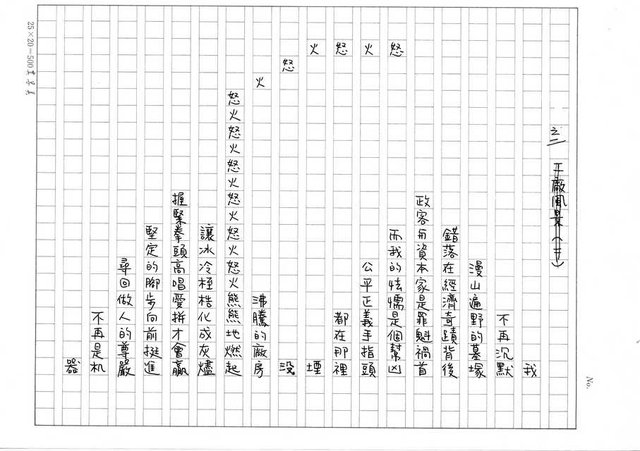 No.
之二 工廠風景(二)
我
不再沉默
漫山遍野的墓塚
錯落在經濟奇蹟背後
政客与資本家是罪魁禍首
怒 而我的怯懦是個幫凶
火 公平正義手指頭
怒 都在那裡
火 堙
怒 沒
火 沸騰的廠房
怒火怒火怒火怒火怒火怒火熊熊地燃起
讓冰冷桎梏化成灰燼
握緊拳頭高唱愛拼才會贏
堅定的腳步向前挺進
尋回做人的尊嚴
不再是机
器
25×20=500